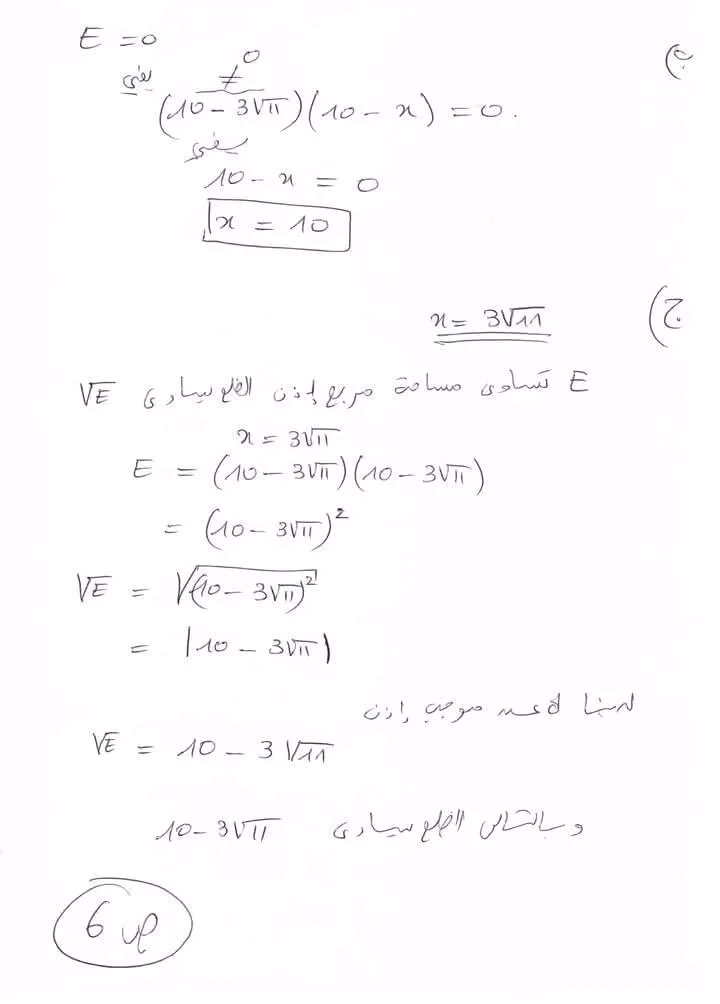 ب)
E = 0
يعني
≠ 0
(10 - 3√11)(10 - x) = 0.
يعني
10 - x = 0
x = 10
ج) x = 3√11
E تساوي مساحة مربع إذن الضلع يساوي √E
x = 3√11
E = (10 - 3√11)(10 - 3√11)
= (10 - 3√11)²
√E = √(10 - 3√11)²
= |10 - 3√11|
لدينا عدد موجب إذن
√E = 10 - 3√11
وبالتالي الضلع يساوي 10 - 3√11
ص 6